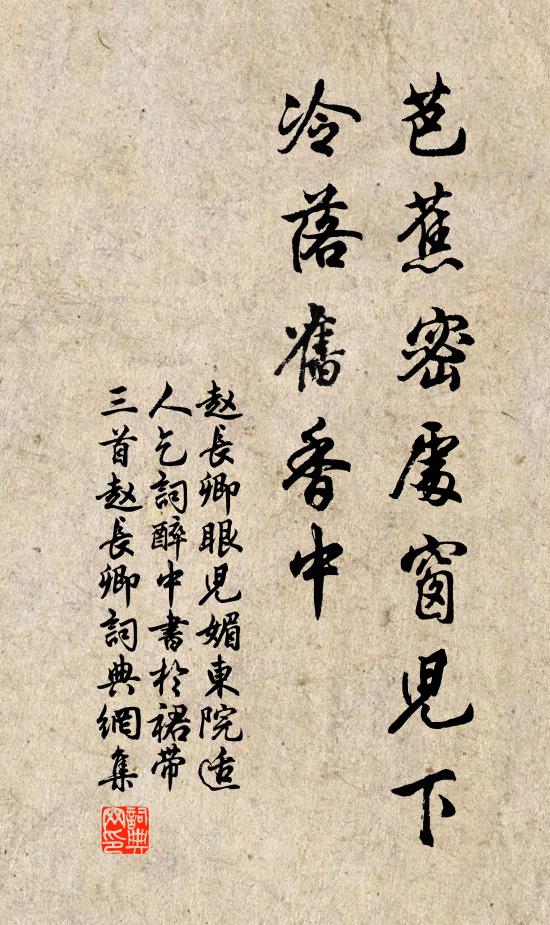 芭蕉密處窗兒下
冷落舊香中
赵長卿眼兒媚東院适
人乞詞醉中書於裙带
三首赵長卿詞典網集
詞典网印